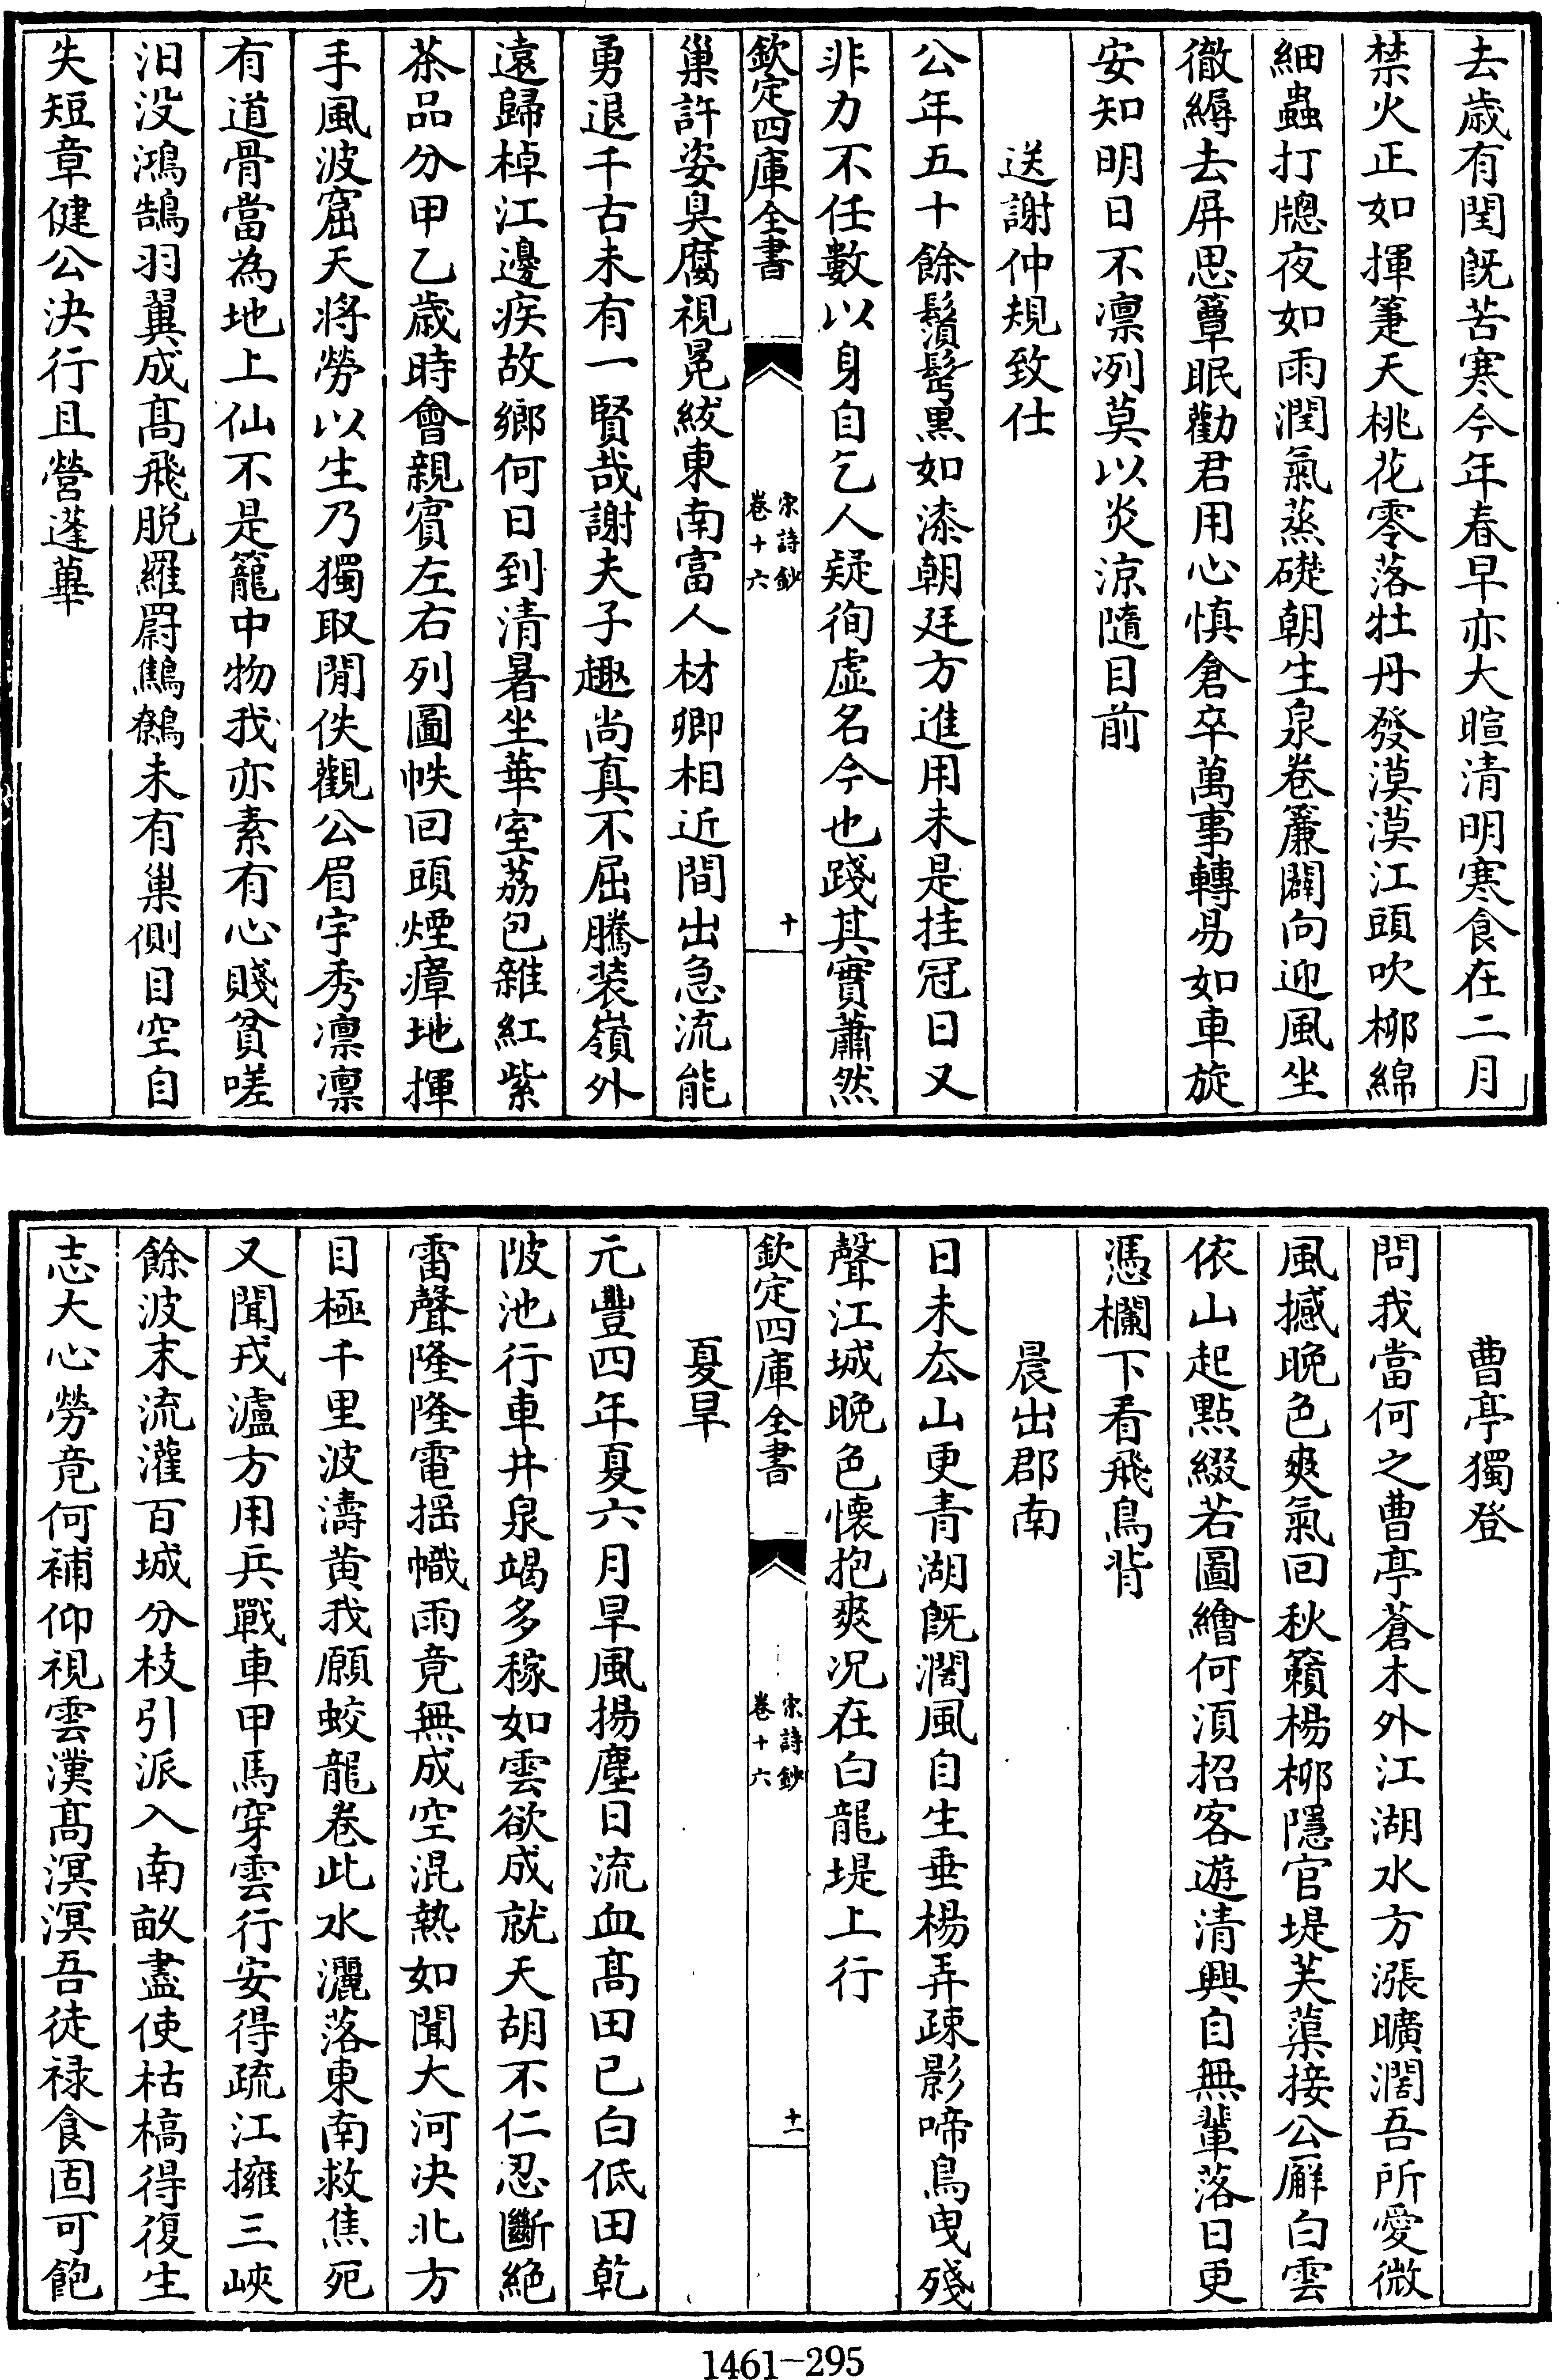 去歲有閏旣苦寒今年春早亦大暄清明寒食在二月
禁火正如揮箑天桃花零落牡丹發漠漠江頭吹柳綿
細蟲打牕夜如雨潤氣蒸礎朝生泉卷簾闢向迎風坐
徹縟去屏思簟眠勸君用心慎倉卒萬事轉易如車旋
安知明日不凛冽莫以炎涼隨目前
送謝仲規致仕
公年五十餘鬚髩黒如漆朝廷方進用未是挂冠日又
非力不任數以身自乞人疑徇虛名今也踐其實蕭然
欽定四庫全書
宋詩鈔
卷十六
十
巢許姿臭腐視冕紱東南富人材卿相近間出急流能
勇退千古未有一賢哉謝夫子趣尚真不屈騰装嶺外
遠歸棹江邊疾故鄉何日到清暑坐華室荔包雜紅紫
茶品分甲乙歲時會親賔左右列圖帙回頭煙瘴地揮
手風波窟天將勞以生乃獨取閒佚觀公眉宇秀凛凛
有道骨當為地上仙不是籠中物我亦素有心賤貧嗟
汨没鴻鵠羽翼成髙飛脱羅罻鷦鷯未有巢側目空自
失短章健公決行且營蓬蓽
曹亭獨登
問我當何之曹亭蒼木外江湖水方漲曠濶吾所愛微
風撼晚色爽氣回秋籟楊柳隱官堤芙蕖接公廨白雲
依山起點綴若圖繪何湏招客遊清興自無輩落日更
憑欄下看飛鳥背
晨出郡南
日未厺山更青湖旣濶風自生垂楊弄疎影啼鳥曳殘
聲江城晚色懐抱爽况在白龍堤上行
欽定四庫全書
宋詩鈔
卷十六
十一
夏旱
元豐四年夏六月旱風揚塵日流血髙田已白低田乾
陂池行車井泉竭多稼如雲欲成就天胡不仁忍斷絶
雷聲隆隆電揺幟雨竟無成空混熱如聞大河决北方
目極千里波濤黄我願蛟龍卷此水灑落東南救焦死
又聞戎瀘方用兵戰車甲馬穿雲行安得疏江擁三峽
餘波末流灌百城分枝引派入南畝盡使枯槁得復生
志大心勞竟何補仰視雲漢髙溟溟吾徒禄食固可飽
1461-295